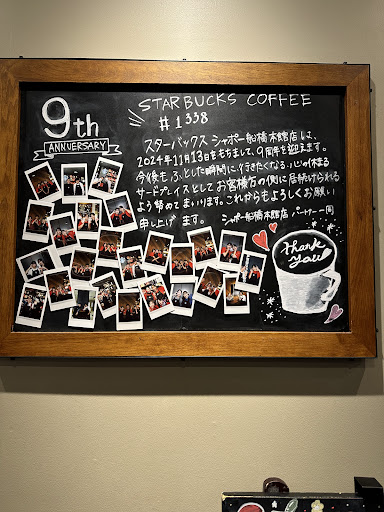 9th
ANNUVERSARY
STARBUCKS COFFEE
#1338
スターバックス シャポー船橋本館店 は、
2024年11月13日をもちまして、9周年を迎えます。
今後も ふとした瞬間に、行きたくなる、心の休まる
サードプレイスとして お客様方の側に居続けられる
よう 努めて まいります。これからもよろしくお願い
申し上げ ます。 シャポー船橋本館店 パートナー一同
Thank
you